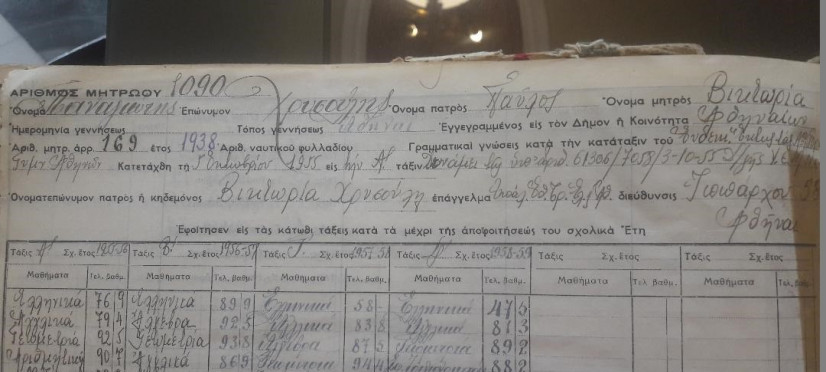 ΑΡΙΘΜΟΣ ΜΗΤΡΩΟΥ 1090
Ὄνομα Παναγιώτης Ἐπώνυμον Χρυσούλης Ὄνομα πατρὸς Παῦλος Ὄνομα μητρὸς Βικτωρία
Ἡμερομηνία γεννήσεως Τόπος γεννήσεως Ἀθῆναι Ἐγγεγραμμένος εἰς τὸν Δῆμον ἢ Κοινότητα Ἀθηναίων
Ἀριθ. μητρ. ἀρρ. 169 ἔτος 1938 Ἀριθ. ναυτικοῦ φυλλαδίου Γραμματικαὶ γνώσεις κατὰ τὴν κατάταξιν τοῦ
Κατετάχθη τῇ 1955 εἰς τὴν Α' τάξιν 61306/7055/3-10-55
Ὀνοματεπώνυμον πατρὸς ἢ κηδεμόνος Βικτωρία Χρυσούλη ἐπάγγελμα διεύθυνσις Ἱππάρχου 98
Ἀθῆναι
Ἐφοίτησεν εἰς τὰς κάτωθι τάξεις κατὰ τὰ μέχρι τῆς ἀποφοιτήσεώς του σχολικὰ Ἔτη
Τάξις Α' Σχ. ἔτος 1955-56 Τάξις Β' Σχ. ἔτος 1956-57 Τάξις Γ' Σχ. ἔτος 1957-58 Τάξις Δ' Σχ. ἔτος 1958-59 Τάξις Σχ. ἔτος Τάξις Σχ. ἔτος
Μαθήματα Τελ. βαθμ. Μαθήματα Τελ. βαθμ. Μαθήματα Τελ. βαθμ. Μαθήματα Τελ. βαθμ. Μαθήματα Τελ. βαθμ. Μαθήματα Τελ. βαθμ.
Ἑλληνικά 76 9 Ἑλληνικά 89 9 Ἑλληνικά 58 Ἑλληνικά 47 5
Ἀγγλικά 79 4 Ἄλγεβρα 92 5 Ἀγγλικά 83 8 Ἀγγλικά 81 3
Γεωμετρία 92 5 Γεωμετρία 93 8 Ἄλγεβρα 87 5 89 2
Ἀριθμητική 90 7 Ἀγγλικά 86 9 94 4 88 2